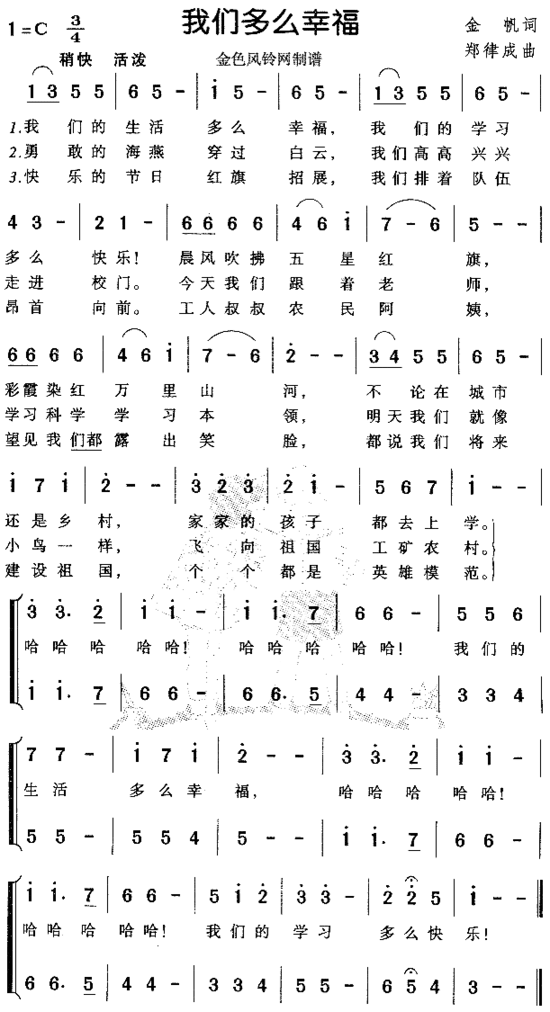 我们多么幸福
1=C 3/4
金 帆 词
郑律成 曲
稍快 活泼
金色风铃网制谱
1 3 5 5 | 6 5 - | i 5 - | 6 5 - | 1 3 5 5 | 6 5 - |
1.我 们的 生活 多么 幸福, 我 们的 学习
2.勇 敢的 海燕 穿过 白云, 我们高高 兴兴
3.快 乐的 节日 红旗 招展, 我们排着 队伍
4 3 - | 2 1 - | 6 6 6 6 | 4 6 i | 7 - 6 | 5 - - |
多么 快乐! 晨风吹拂 五 星 红 旗,
走进 校门。 今天我们 跟 着 老 师,
昂首 向前。 工人叔叔 农 民 阿 姨,
6 6 6 6 | 4 6 i | 7 - 6 | 2̇ - - | 3 4 5 5 | 6 5 - |
彩霞染红 万 里 山 河, 不 论在 城市
学习科学 学 习 本 领, 明天我们 就像
望见我们都 露 出 笑 脸, 都说我们 将来
i 7 i | 2̇ - - | 3̇ 2̇ 3̇ | 2̇ i - | 5 6 7 | i - - |
还是乡 村, 家家的 孩子 都去上 学。
小鸟一 样, 飞 向祖国 工矿农 村。
建设祖 国, 个 个都是 英雄模 范。
3̇ 3̇. 2̇ | i i - | i i. 7 | 6 6 - | 5 5 6 |
哈哈 哈 哈哈! 哈哈 哈 哈哈! 我们的
i i. 7 | 6 6 - | 6 6. 5 | 4 4 - | 3 3 4 |
7 7 - | i 7 i | 2̇ - - | 3̇ 3̇. 2̇ | i i - |
生活 多么幸 福, 哈哈 哈 哈哈!
5 5 - | 5 5 4 | 5 - - | i i. 7 | 6 6 - |
i i. 7 | 6 6 - | 5 i 2̇ | 3̇ 3̇ - | 2̇ 2̇ 5 | i - - ‖
哈哈 哈 哈哈! 我们的 学习 多么快 乐!
6 6. 5 | 4 4 - | 3 3 4 | 5 5 - | 6 5 4 | 3 - - ‖